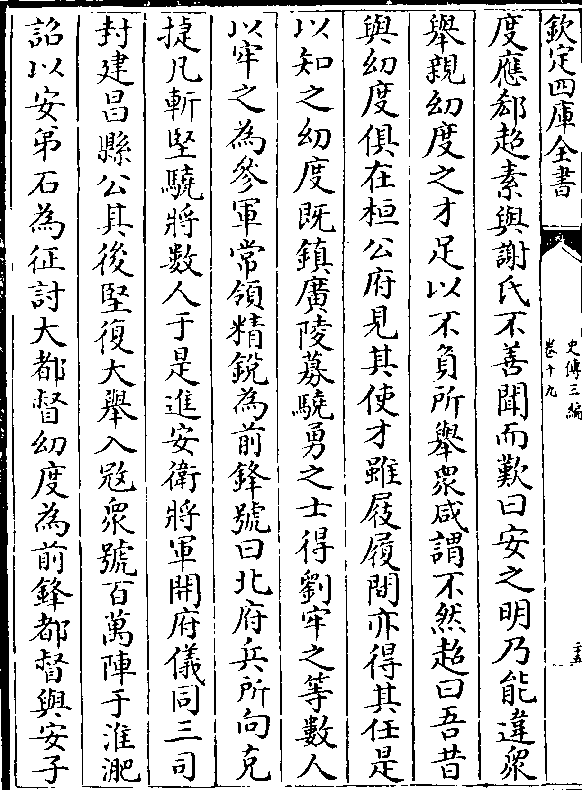 欽定四庫全書
史傳三編
卷十九
度應郄超素與謝氏不善聞而歎曰安之明乃能違衆
舉親幼度之才足以不負所舉衆咸謂不然超曰吾昔
與幼度俱在桓公府見其使才雖屐履間亦得其任是
以知之幼度既鎮廣陵募驍勇之士得劉牢之等數人
以牢之為參軍常領精銳為前鋒號曰北府兵所向克
捷凡斬堅驍將數人于是進安衛將軍開府儀同三司
封建昌縣公其後堅復大舉入寇衆號百萬陣于淮淝
詔以安弟石為征討大都督幼度為前鋒都督與安子